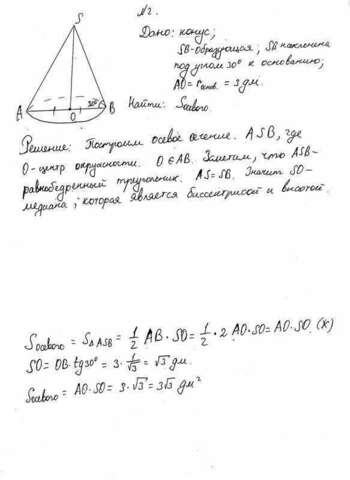 №2.
Дано: конус;
SB-образующая; SB наклонена
под углом 30° к основанию;
AO = r = 3 дм.
Найти: Sосевого
S
A
O
30°
B
Решение: Построим осевое сечение. ASB, где
O-центр окружности. O∈AB. Заметим, что ASB-
равнобедренный треугольник. AS=SB. Значит SO-
медиана, которая является биссектрисой и высотой.
Sосевого = S△ASB = 1/2 AB · SO = 1/2 · 2 AO · SO = AO · SO. (*)
SO = OB · tg30° = 3 · 1/√3 = √3 дм.
Sосевого = AO · SO = 3 · √3 = 3√3 дм²